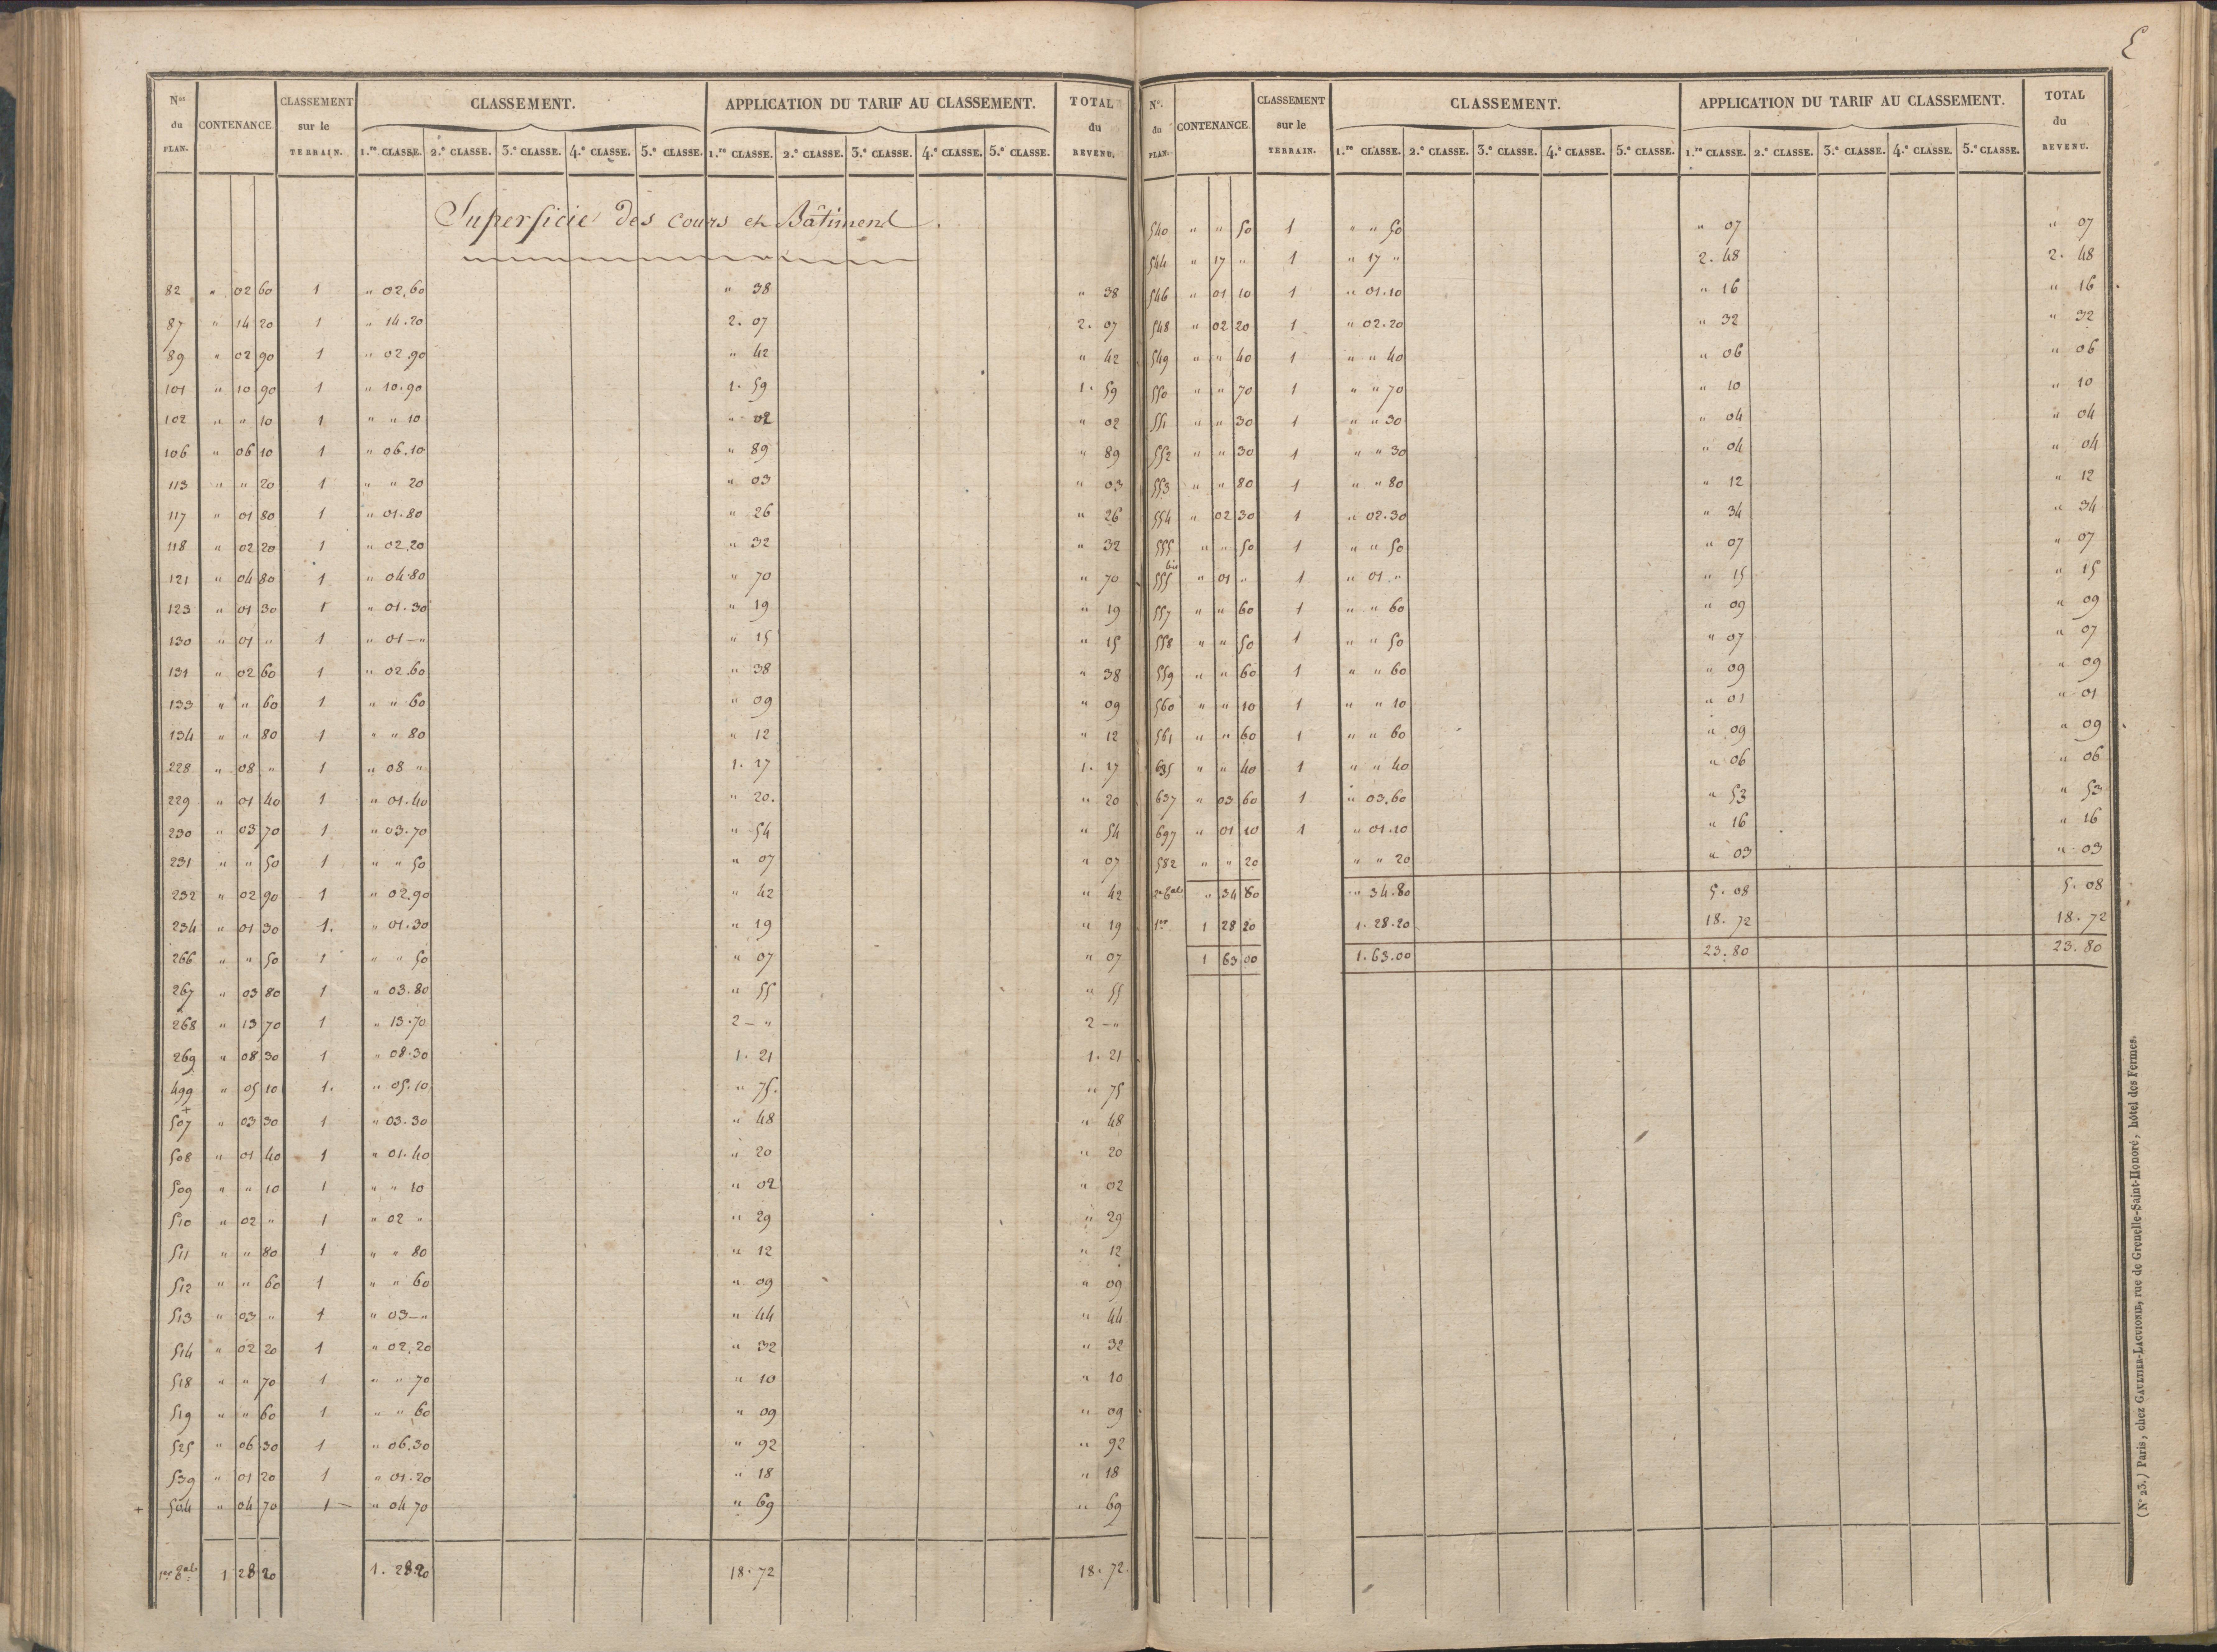 Nos du PLAN. CONTENANCE. CLASSEMENT sur le TERRAIN. CLASSEMENT. APPLICATION DU TARIF AU CLASSEMENT. TOTAL du REVENU.
1.re CLASSE. 2.e CLASSE. 3.e CLASSE. 4.e CLASSE. 5.e CLASSE. 1.re CLASSE. 2.e CLASSE. 3.e CLASSE. 4.e CLASSE. 5.e CLASSE.
Superficie des cours et Bâtiment.
82 " 02 60 1 " 02,60 " 38 " 38
87 " 14 20 1 " 14.20 2. 07 2. 07
89 " 02 90 1 " 02.90 " 42 " 42
101 " 10 90 1 " 10.90 1. 59 1. 59
102 " " 10 1 " " 10 " 02 " 02
106 " 06 10 1 " 06.10 " 89 " 89
113 " " 20 1 " " 20 " 03 " 03
117 " 01 80 1 " 01.80 " 26 " 26
118 " 02 20 1 " 02.20 " 32 " 32
121 " 04 80 1 " 04.80 " 70 " 70
123 " 01 30 1 " 01.30 " 19 " 19
130 " 01 " 1 " 01 — " " 15 " 15
131 " 02 60 1 " 02.60 " 38 " 38
133 " " 60 1 " " 60 " 09 " 09
134 " " 80 1 " " 80 " 12 " 12
228 " 08 " 1 " 08 " 1. 17 1. 17
229 " 01 40 1 " 01.40 " 20. " 20
230 " 03 70 1 " 03.70 " 54 " 54
231 " " 50 1 " " 50 " 07 " 07
232 " 02 90 1 " 02.90 " 42 " 42
234 " 01 30 1. " 01.30 " 19 " 19
266 " " 50 1 " " 50 " 07 " 07
267 " 03 80 1 " 03.80 " 55 " 55
268 " 13 70 1 " 13.70 2 — " 2 — "
269 " 08 30 1 " 08.30 1. 21 1. 21
499 " 05 10 1. " 05.10 " 75. " 75
+
507 " 03 30 1 " 03.30 " 48 " 48
508 " 01 40 1 " 01.40 " 20 " 20
509 " " 10 1 " " 10 " 02 " 02
510 " 02 " 1 " 02 " " 29 " 29
511 " " 80 1 " " 80 " 12 " 12
512 " " 60 1 " " 60 " 09 " 09
513 " 03 " 1 " 03 — " " 44 " 44
514 " 02 20 1 " 02.20 " 32 " 32
518 " " 70 1 " " 70 " 10 " 10
519 " " 60 1 " " 60 " 09 " 09
525 " 06 30 1 " 06.30 " 92 " 92
539 " 01 20 1 " 01.20 " 18 " 18
+ 504 " 04 70 1 — " 04 70 " 69 " 69
1 28 20 1. 28.20 18. 72 18. 72.
E
No. du PLAN. CONTENANCE. CLASSEMENT sur le TERRAIN. CLASSEMENT. APPLICATION DU TARIF AU CLASSEMENT. TOTAL du REVENU.
1.re CLASSE. 2.e CLASSE. 3.e CLASSE. 4.e CLASSE. 5.e CLASSE. 1.re CLASSE. 2.e CLASSE. 3.e CLASSE. 4.e CLASSE. 5.e CLASSE.
540 " " 50 1 " " 50 " 07 " 07
544 " 17 " 1 " 17 " 2. 48 2. 48
546 " 01 10 1 " 01.10 " 16 " 16
548 " 02 20 1 " 02.20 " 32 " 32
549 " " 40 1 " " 40 " 06 " 06
550 " " 70 1 " " 70 " 10 " 10
551 " " 30 1 " " 30 " 04 " 04
552 " " 30 1 " " 30 " 04 " 04
553 " " 80 1 " " 80 " 12 " 12
554 " 02 30 1 " 02.30 " 34 " 34
555 " " 50 1 " " 50 " 07 " 07
555 bis " 01 " 1 " 01 " " 15 " 15
557 " " 60 1 " " 60 " 09 " 09
558 " " 50 1 " " 50 " 07 " 07
559 " " 60 1 " " 60 " 09 " 09
560 " " 10 1 " " 10 " 01 " 01
561 " " 60 1 " " 60 " 09 " 09
635 " " 40 1 " " 40 " 06 " 06
637 " 03 60 1 " 03.60 " 53 " 53
697 " 01 10 1 " 01.10 " 16 " 16
582 " " 20 " " 20 " 03 " 03
" 34 80 " 34.80 5. 08 5. 08
1re 1 28 20 1. 28.20 18. 72 18. 72
1 63 00 1. 63.00 23. 80 23. 80
(No 23.) Paris, chez GAULTIER-LAGUIONIE, rue de Grenelle-Saint-Honoré, hôtel des Fermes.